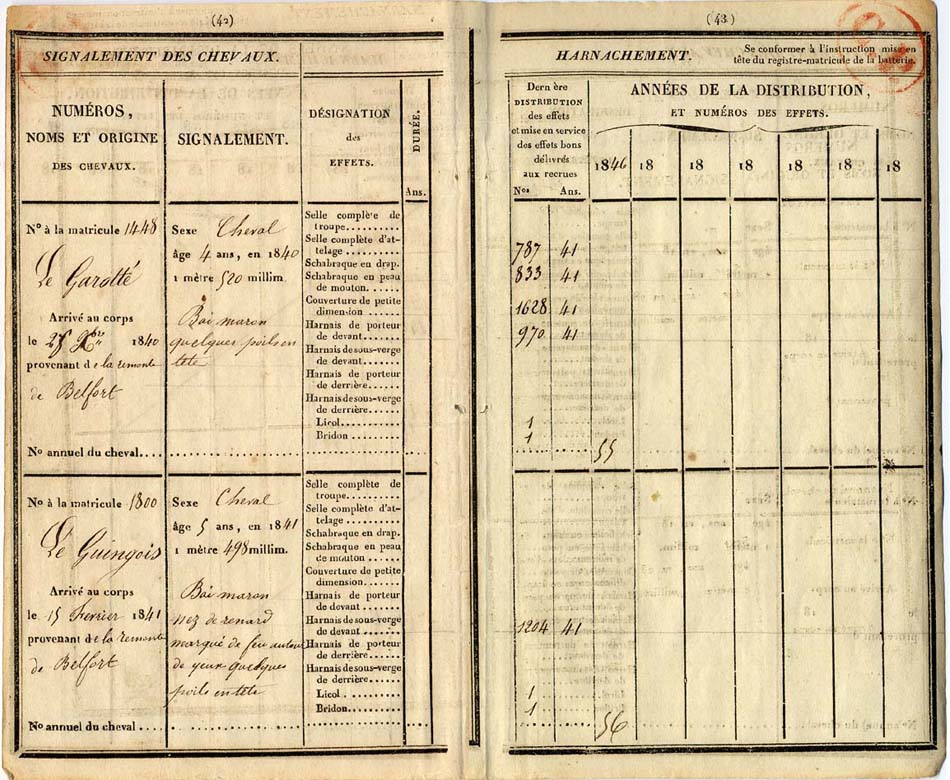 (42)
SIGNALEMENT DES CHEVAUX.
NUMÉROS,
NOMS ET ORIGINE
DES CHEVAUX.
SIGNALEMENT.
DÉSIGNATION
des
EFFETS.
DURÉE.
Ans.
No à la matricule 1448
Le Garotté
Arrivé au corps
le 25 Xbre 1840
provenant de la remonte
de Belfort
No annuel du cheval....
Sexe Cheval
âge 4 ans, en 1840
1 mètre 520 millim.
Bai maron
quelques poils en
tête
Selle complète de
troupe..........
Selle complète d'at-
telage..........
Schabraque en drap.
Schabraque en peau
de mouton.......
Couverture de petite
dimension.......
Harnais de porteur
de devant.......
Harnais de sous-verge
de devant.......
Harnais de porteur
de derrière......
Harnais de sous-verge
de derrière......
Licol..........
Bridon.........
No à la matricule 1800
Le Guingois
Arrivé au corps
le 15 Fevrier 1841
provenant de la remonte
de Belfort
No annuel du cheval....
Sexe Cheval
âge 5 ans, en 1841
1 mètre 498 millim.
Bai maron
nez de renard
marqué de feu autour
de yeux quelques
poils en tête
Selle complète de
troupe..........
Selle complète d'at-
telage..........
Schabraque en drap.
Schabraque en peau
de mouton.......
Couverture de petite
dimension.......
Harnais de porteur
de devant.......
Harnais de sous-verge
de devant.......
Harnais de porteur
de derrière......
Harnais de sous-verge
de derrière......
Licol..........
Bridon.........
(43)
HARNACHEMENT.
Se conformer à l'instruction mise en
tête du registre-matricule de la batterie.
Dernière
DISTRIBUTION
des effets
et mise en service
des effets bons
délivrés
aux recrues
Nos Ans.
ANNÉES DE LA DISTRIBUTION,
ET NUMÉROS DES EFFETS.
1846 18 18 18 18 18 18
787 41
833 41
1628 41
970 41
1
1
55
1204 41
1
1
56